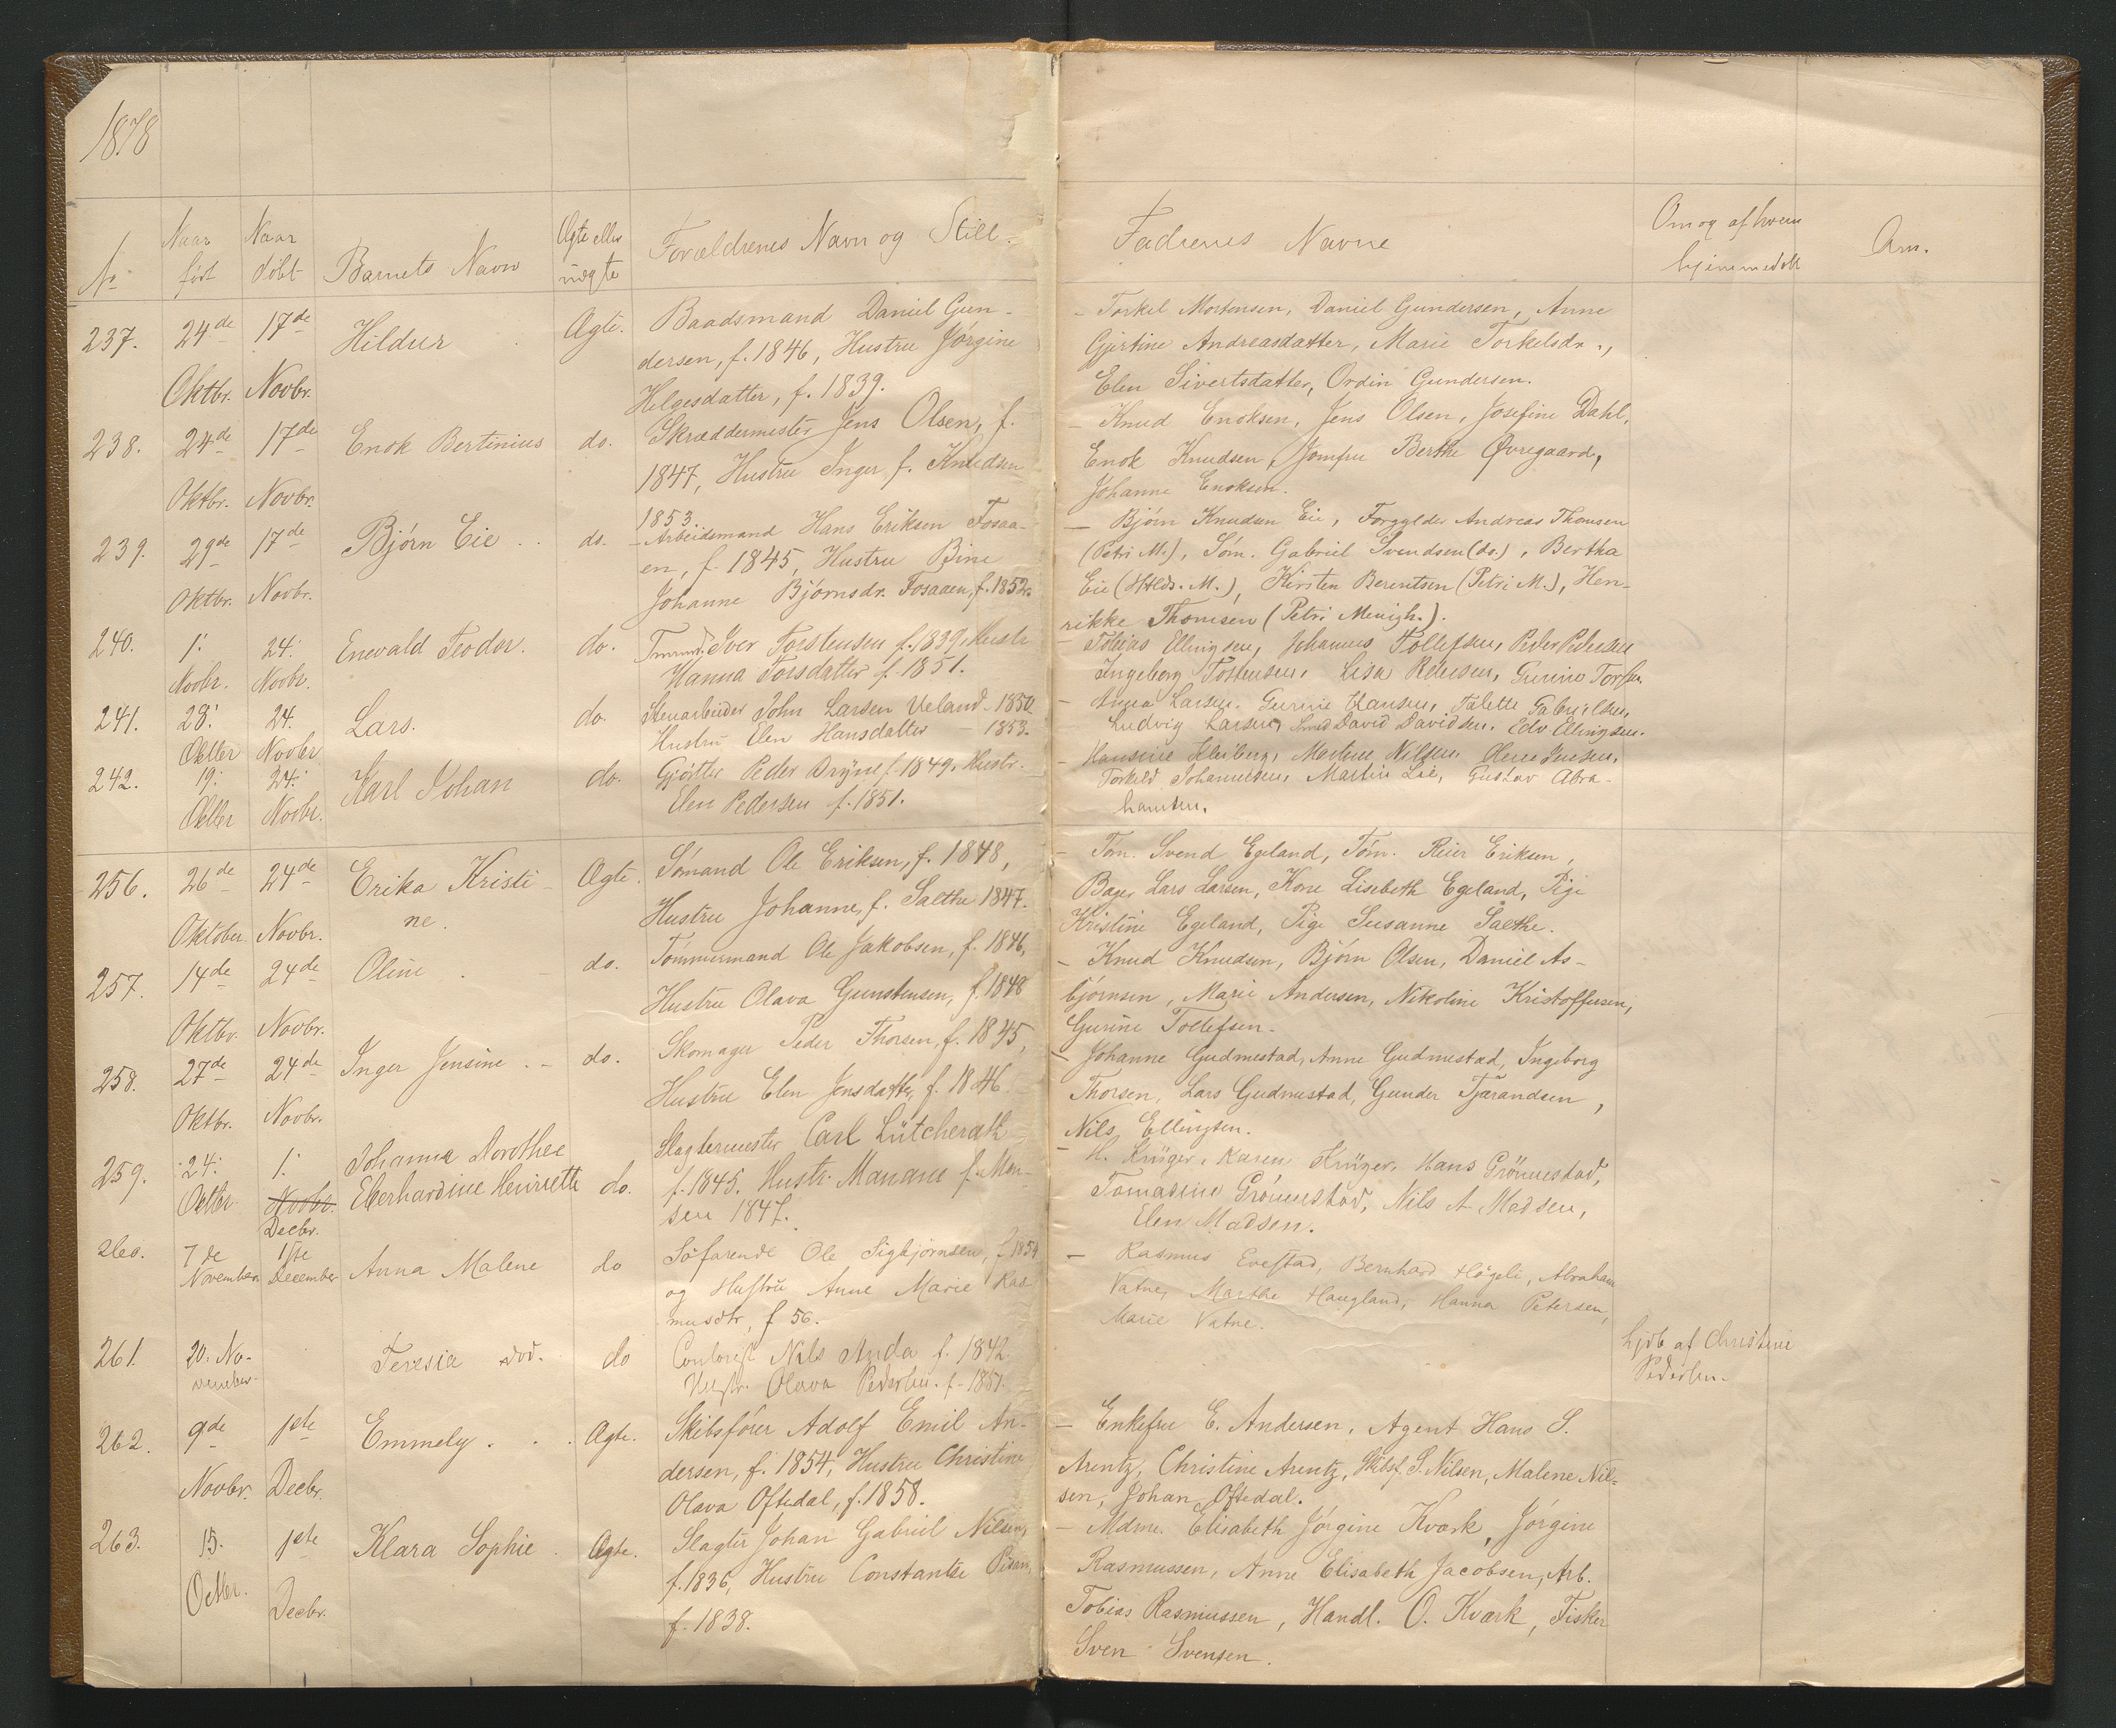 1878
No
Naar født
Naar døbt
Barnets Navn
Ægte eller uægte
Forældrenes Navn og Still-
Faddrenes Navne
Om og af hvem hjemmedøbt
Anm.
237. 24de Oktbr. 17de Novbr. Hildur Ægte.
Baadsmand Daniel Gun-
dersen, f. 1846, Hustru Jørgine
Helgesdatter, f. 1839.
- Torkel Mortensen, Daniel Gundersen, Anne
Gjertine Andreasdatter, Marie Torkelsdr.,
Elen Sivertsdatter, Ordin Gundersen.
238. 24de Oktbr. 17de Novbr. Enok Bertinius do.
Skræddermester Jens Olsen, f.
1847, Hustru Inger f. Knudsen
1853
- Knud Enoksen, Jens Olsen, Josefine Dahl,
Enok Knudsen, Jomfru Berthe Øvregaard,
Johanne Enoksen.
239. 29de Oktbr. 17de Novbr. Bjørn Eie do.
- Arbeidsmand Hans Eriksen Fosaa-
en, f. 1845, Hustru Bine
Johanne Bjørnsdr. Fosaaen, f. 1852.
- Bjørn Knudsen Eie, Forgylder Andreas Thomsen
(Petri M.), Søm. Gabriel Svendsen (do.), Bertha
Eie (Htlds. M.), Kirsten Berentsen (Petri M.), Hen-
rikke Thomsen (Petri Menigh.).
240. 1. Novbr. 24. Novbr. Enevald Teodor. do.
Tmmd. Iver Torstensen f. 1839, Hustr
Hanna Torsdatter f. 1851.
- Tobias Ellingsen, Johannes Tollefsen, Peder Pedersen
Ingeborg Tostensen, Lisa Pedersen, Gurine
241. 28. Octbr 24. Novbr Lars. do.
Stenarbeider John Larsen Ueland - 1850.
Hustru Elen Hansdatter - 1853.
- Anna Larsen. Gurine Hansen, Talette Gabrielsen,
Ludvig Larsen, Smed David Davidsen. Edv Elingsen.
242. 19. Octbr 24. Novbr. Karl Johan do.
Gjørtler Peder Bryne f. 1849. Hustr.
Elen Pedersen f. 1851.
- Hansine Kleiberg, Martine Nilsen. Olene Jensen,
Torkeld Johannesen, Martin Lie, Gustav Abra-
hamsen.
256. 26de Oktober 24de Novbr. Erika Kristi-
ne. Ægte.
Sømand Ole Eriksen, f. 1848,
Hustru Johanne, f. Salthe 1847.
- Tøm. Svend Egeland, Tøm. Reier Eriksen,
Bager Lars Larsen, Kone Lisebeth Egeland, Pige
Kristine Egeland, Pige Susanne Salthe.
257. 14de Oktbr. 24de Novbr. Oline do.
Tømmermand Ole Jakobsen, f. 1846,
Hustru Olava Gunstensen, f. 1848
- Knud Knudsen, Bjørn Olsen, Daniel As-
bjørnsen, Marie Andersen, Nikoline Kristoffersen,
Gurine Tollefsen.
258. 27de Oktbr. 24de Novbr. Inger Jensine do.
Skomager Peder Thorsen, f. 1845,
Hustru Elen Jensdatter, f. 1846.
- Johanne Gudmestad, Anne Gudmestad, Ingeborg
Thorsen, Lars Gudmestad, Gunder Tjærandsen,
Nils Ellingsen.
259. 24. Octbr 1. Novbr. Decbr. Johanna Dorothee
Eberhardine Henriette do.
Slagtermester Carl Lütcherath
f. 1845. Hustr. Mariane f. Mon-
sen 1847.
- H. Krüger, Karen Krüger, Hans Grønnestad,
Tomasine Grønnestad, Nils A Madsen,
Elen Madsen.
260. 7de November 1ste December Anna Malene do
Søfarende Ole Sigbjørnsen, f 1854
og Hustru Anne Marie Ras-
musdtr, f 56.
- Rasmus Evestad, Bernhard Høgeli, Abraham
Vatne, Marthe Haugland, Hanna Petersen,
Marie Vatne.
261. 20. No-
vember Teresia død. do
Contorist Nils Anda f. 1842
Hustr. Olava Pedersen. f. 1851.
hjdb af Christine
Pedersen.
262. 9de Novbr. 1ste Decbr. Emmely Ægte.
Skibsfører Adolf Emil An-
dersen, f. 1854, Hustru Christine
Olava Oftedal, f. 1858.
- Enkefru E. Andersen, Agent Hans S.
Arentz, Christine Arentz, Skibsf. S. Nilsen, Malene Nil-
sen, Johan Oftedal.
263. 15. Octbr. 1ste Decbr. Klara Sophie Ægte.
Slagter Johan Gabriel Nilsen,
f. 1836, Hustru Constantse
f. 1838.
- Mdme. Elisabeth Jørgine Kværk, Jørgine
Rasmussen, Anne Elisabeth Jacobsen, Arb.
Tobias Rasmussen, Handl. O. Kværk, Fisker
Sven Svensen.